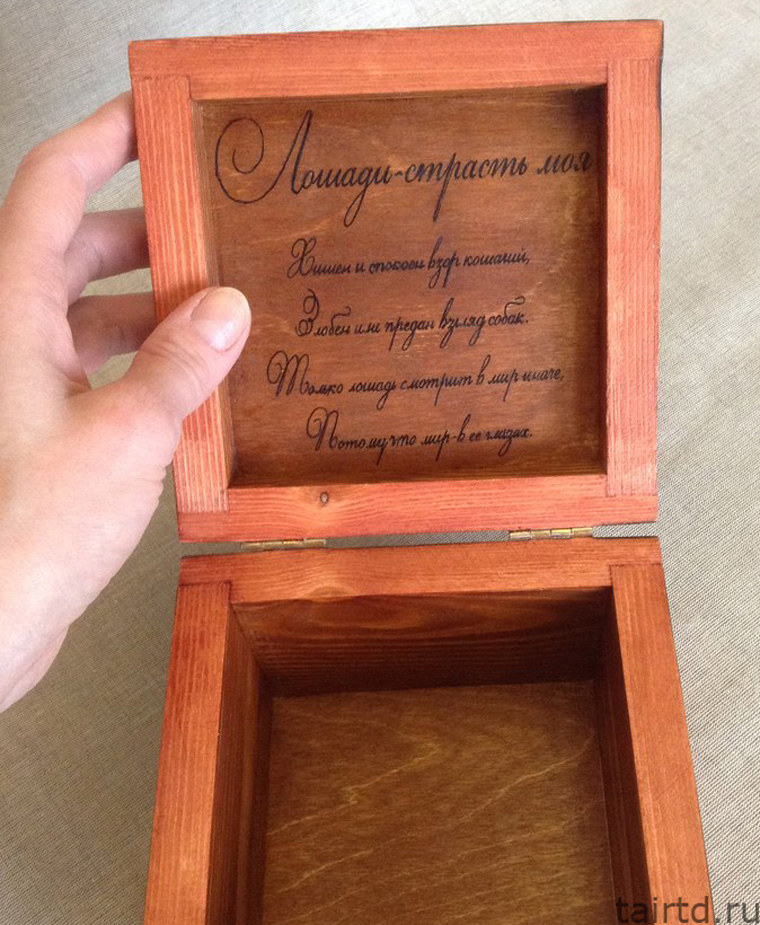 Лошади-страсть моя
Хищен и спокоен взор кошачий,
Злобен или предан взгляд собак.
Только лошадь смотрит в мир иначе,
Потому что мир-в ее глазах.
tairtd.ru